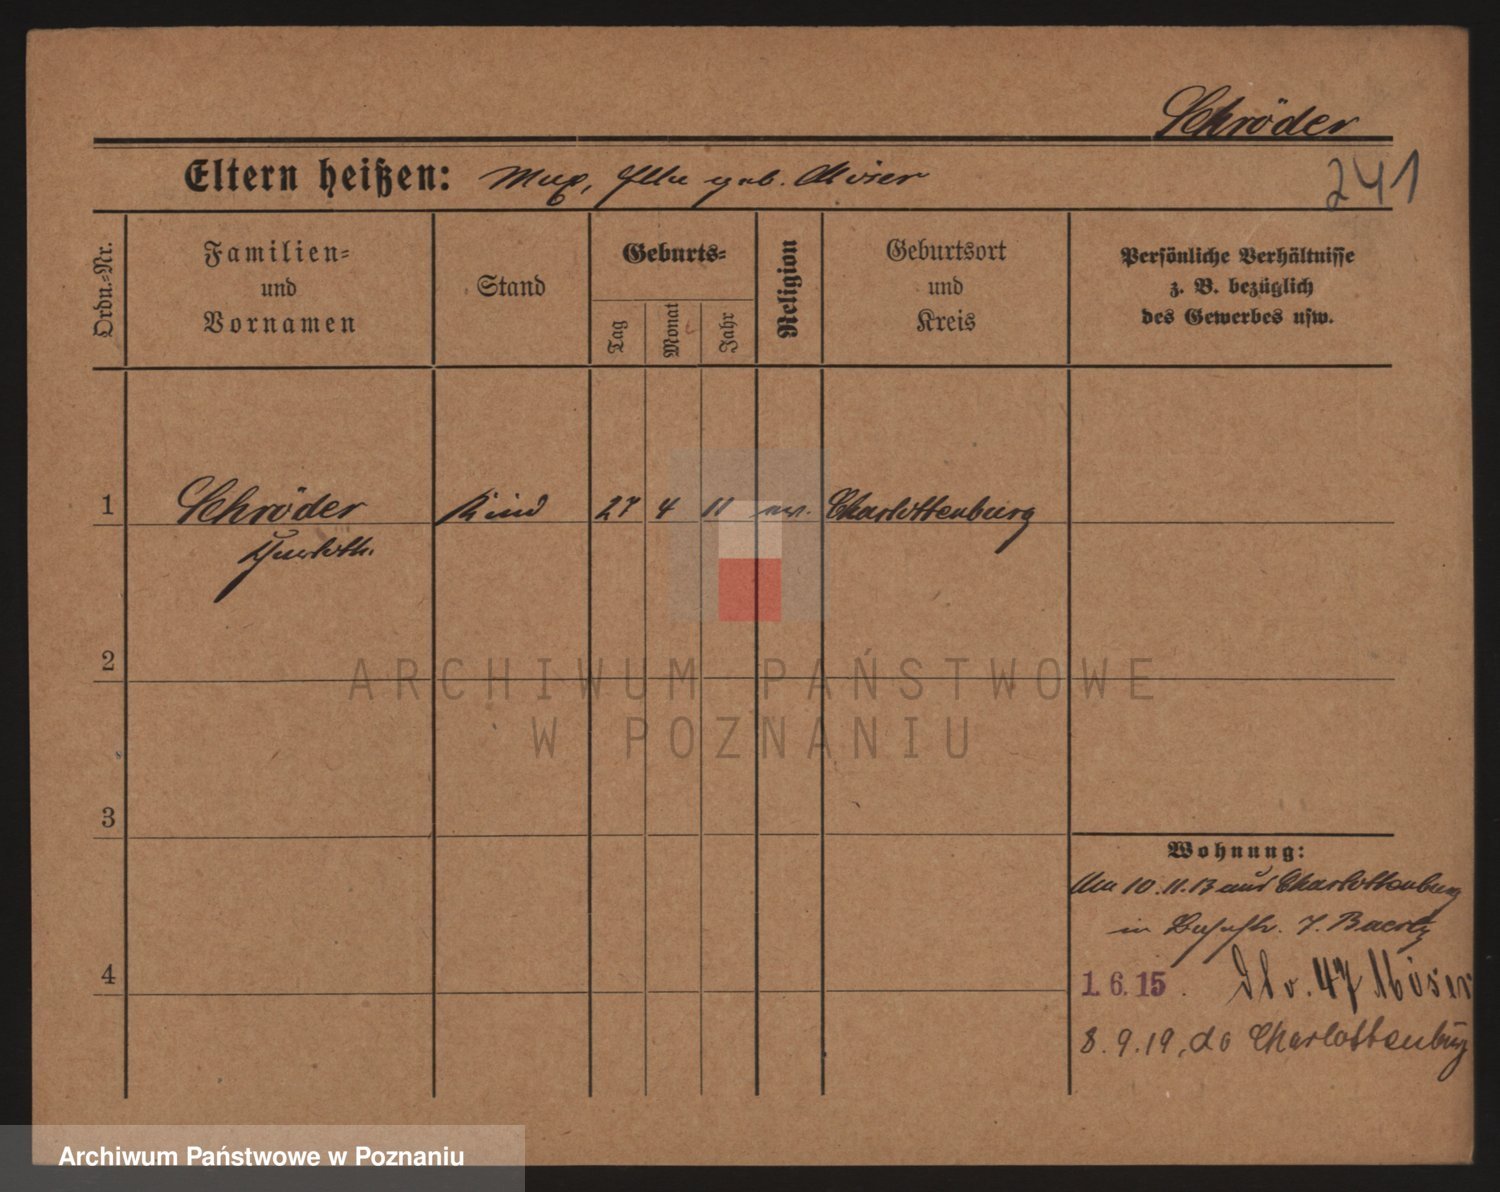 Schröder
Eltern heißen: Max, Ella geb. Moser
241
Ordn.-Nr.
Familien-
und
Vornamen
Stand
Geburts-
Tag
Monat
Jahr
Religion
Geburtsort
und
Kreis
Persönliche Verhältnisse
z. B. bezüglich
des Gewerbes usw.
1 Schröder Kind 27 4 11 ev. Charlottenburg
2
3
4
Wohnung:
Am 10.11.13 aus Charlottenburg
in 7. Baertz
1.6.15. 47 Möser
8.9.19, do Charlottenburg
ARCHIWUM PAŃSTWOWE
W POZNANIU
Archiwum Państwowe w Poznaniu